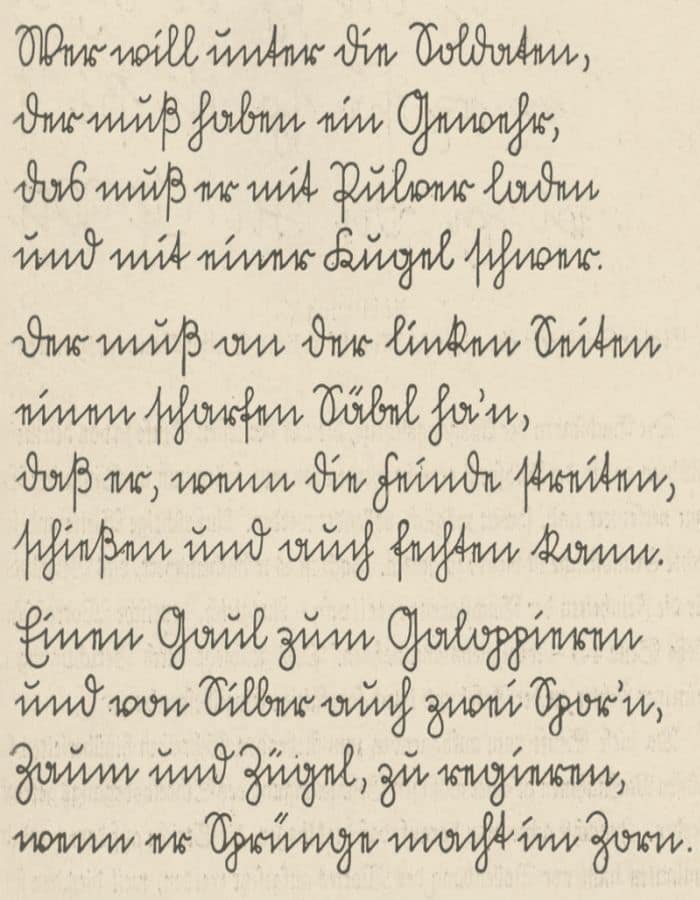 Wer will unter die Soldaten,
der muß haben ein Gewehr,
das muß er mit Pulver laden
und mit einer Kugel schwer.
Der muß an der linken Seiten
einen scharfen Säbel ha'n,
daß er, wenn die Feinde streiten,
schießen und auch fechten kann.
Einen Gaul zum Galoppieren
und von Silber auch zwei Spor'n,
Zaum und Zügel, zu regieren,
wenn er Sprünge macht im Zorn.